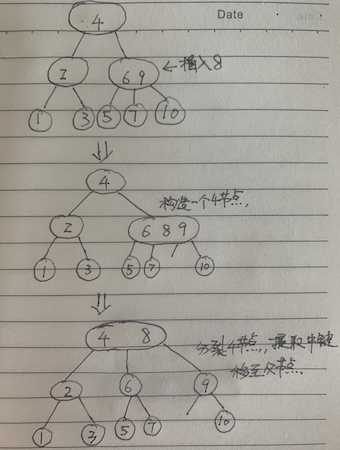 Date
4
2 6 9 ←插入8
1 3 5 7 10
4
构造一个4节点,
2 6 8 9
1 3 5 7 10
4 8
分裂4节点,提取中键
移至父节点
2 6 9
1 3 5 7 10